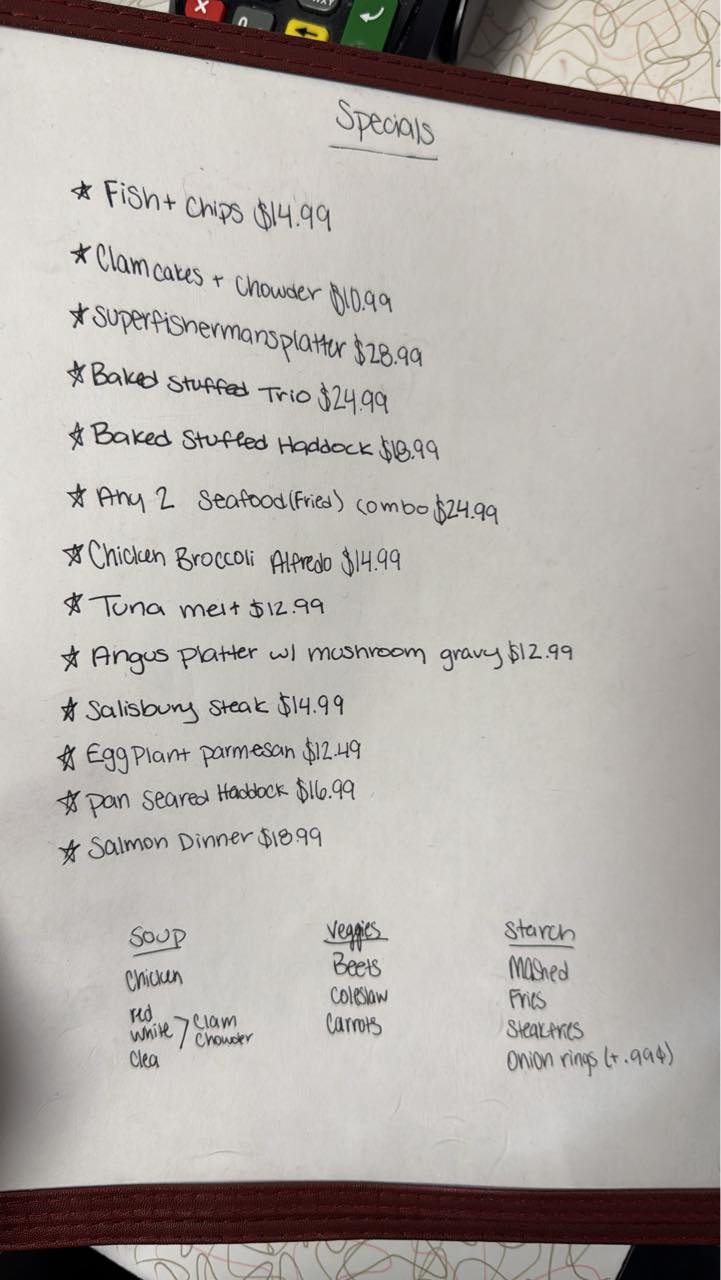 Specials
☆ Fish + Chips $14.99
☆ Clamcakes + Chowder $10.99
☆ Superfishermansplatter $28.99
☆ Baked Stuffed Trio $24.99
☆ Baked Stuffed Haddock $18.99
☆ Any 2 Seafood (Fried) combo $24.99
☆ Chicken Broccoli Alfredo $14.99
☆ Tuna melt $12.99
☆ Angus Platter w/ mushroom gravy $12.99
☆ Salisbury Steak $14.99
☆ EggPlant parmesan $12.49
☆ pan Seared Haddock $16.99
☆ Salmon Dinner $18.99
Soup
Chicken
red
white > Clam Chowder
Clea
Veggies
Beets
Coleslaw
Carrots
Starch
Mashed
Fries
Steakfries
Onion rings (+ .99¢)